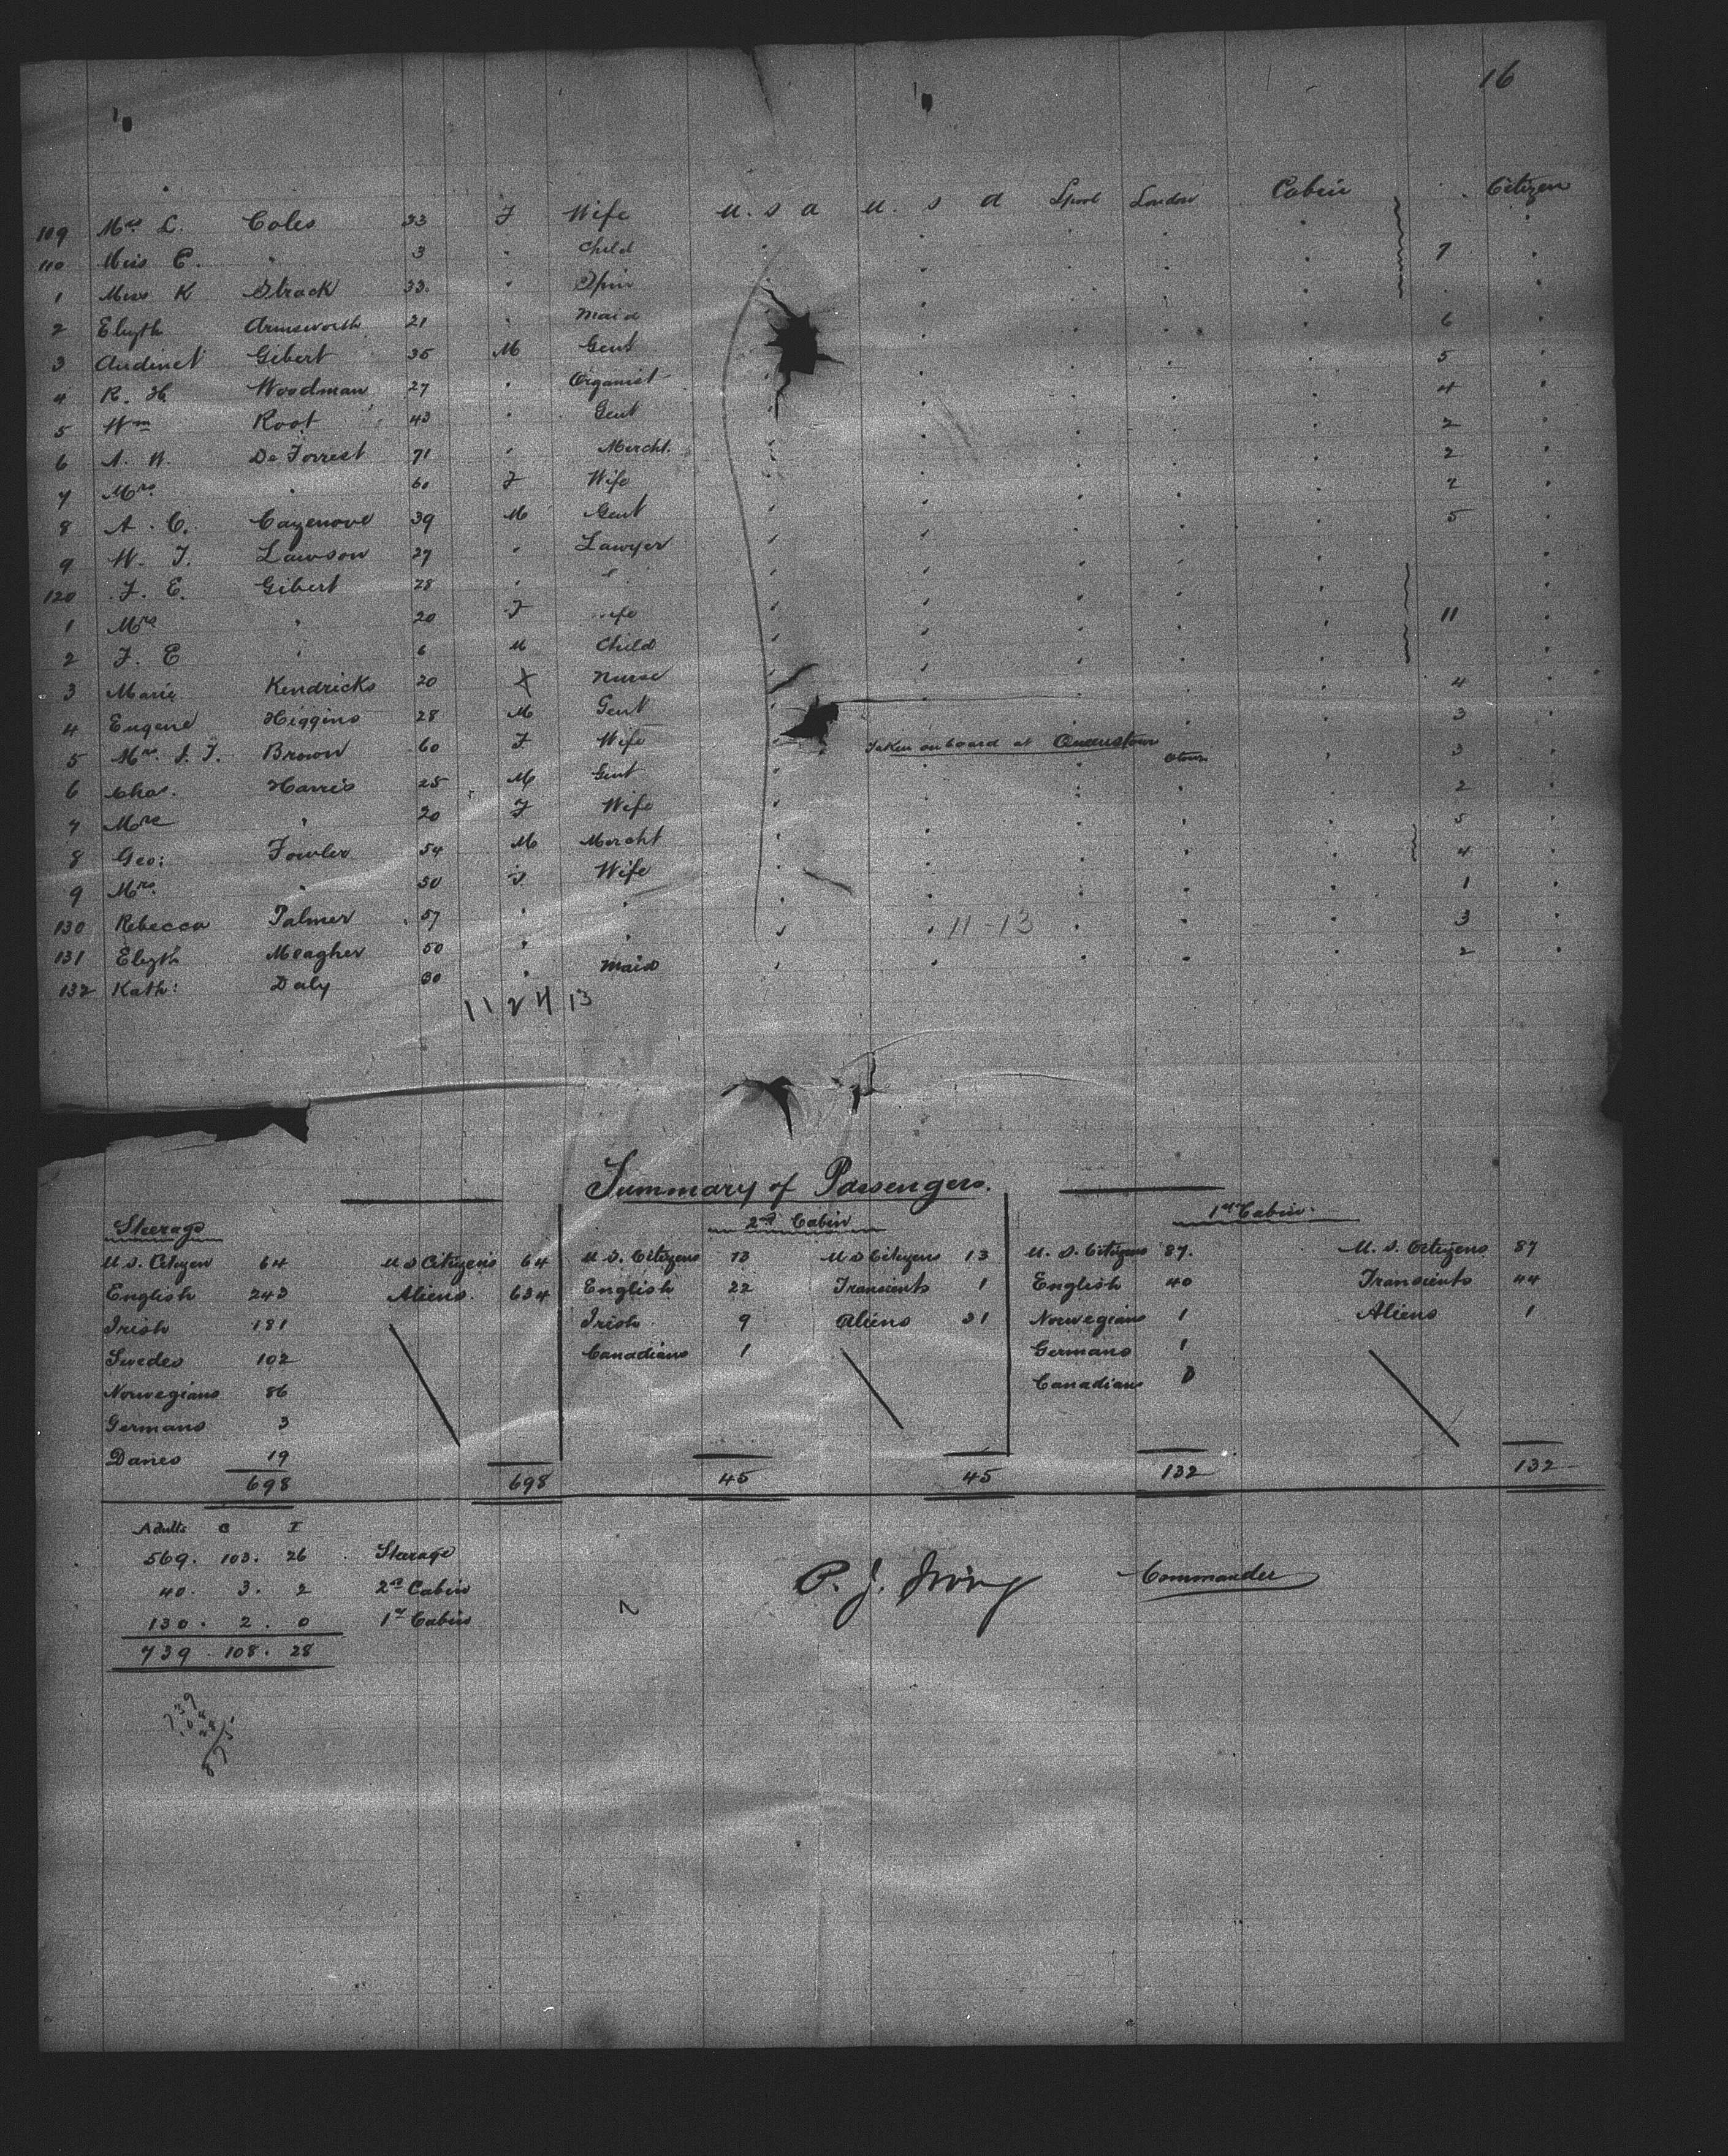 16
109 Mrs L. Coles 33 F Wife U. S A U. S A Lpool London Cabin Citizen
110 Miss C. " 3 " Child " " " " " 7 "
1 Miss K Strack 33. " Spin " " " " "
2 Elizth Armsworth 21 " Maid " " " " 6 "
3 Audinet Gibert 35 M Gent " " " " 5 "
4 R. H. Woodman 27 " Organist " " " " 4 "
5 Wm Root 43 " Gent " " " " 2 "
6 A. W. De Forrest 71 " Mercht. " " " " 2 "
7 Mrs " 60 F Wife " " " " 2 "
8 A. C. Cazenove 39 M Gent " " " " 5 "
9 W. F. Lawson 27 " Lawyer " " " "
120 F. E. Gibert 28 " " " " " "
1 Mrs " 20 F " " " " 11 "
2 F. E " 6 M Child " " " "
3 Marie Kendricks 20 X Nurse " " " " 4 "
4 Eugene Higgins 28 M Gent " " " " 3 "
5 Mrs. J. T. Brown 60 F Wife " Taken on board at Queenstown 3 "
6 Chas. Harris 25 M Gent " " " " 2 "
7 Mrs " 20 F Wife " " " " 5 "
8 Geo: Fowler 54 M Mercht " " " " 4 "
9 Mrs. " 50 F Wife " " " " 1 "
130 Rebecca Palmer 57 " " " " 11-13 " " 3 "
131 Elizth Meagher 50 " " " " " " 2 "
132 Kath: Daly 30 " Maid
11 2 4 13
Summary of Passengers.
Steerage 2nd Cabin 1st Cabin.
U.S. Citizen 64 U S Citizens 64 U. S. Citizens 13 U S Citizens 13 U. S. Citizens 87. U. S. Citizens 87
English 243 Aliens. 634 English 22 Transients 1 English 40 Transients 44
Irish 181 Irish 9 Aliens 31 Norwegians 1 Aliens 1
Swedes 102 Canadians 1 Germans 1
Norwegians 86 Canadians
Germans 3
Danes 19
698 698 45 45 132 132
Adults C I
569. 103. 26 Steerage
40. 3. 2 2nd Cabin
130. 2. 0 1st Cabin
739. 108. 28
P. J. Irving Commander
739
108
28
875